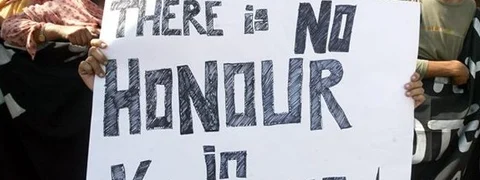 THERE is NO
HONOUR
in